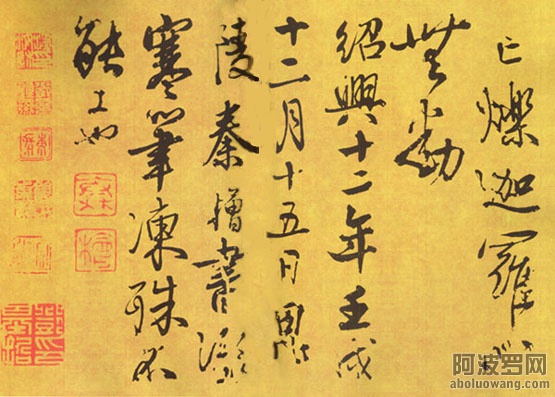 亡爍迦羅心
無動
紹興十二年壬戌
十二月十五日
陵秦檜書
寒筆凍殊不
能工也
阿波罗网
aboluowang.com